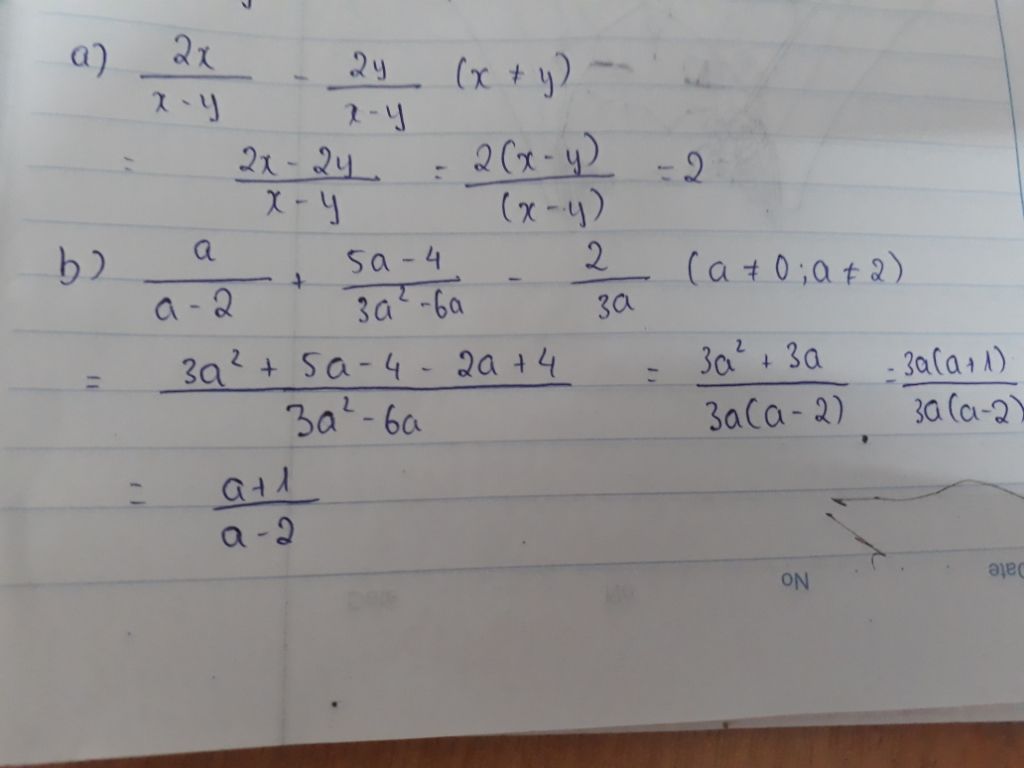 a) 2x/(x-y) - 2y/(x-y) (x ≠ y)
= (2x - 2y)/(x - y) = 2(x-y)/(x-y) = 2
b) a/(a-2) + (5a-4)/(3a²-6a) - 2/(3a) (a ≠ 0; a ≠ 2)
= (3a² + 5a - 4 - 2a + 4)/(3a² - 6a) = (3a² + 3a)/(3a(a-2)) = 3a(a+1)/(3a(a-2))
= (a+1)/(a-2)
No Date